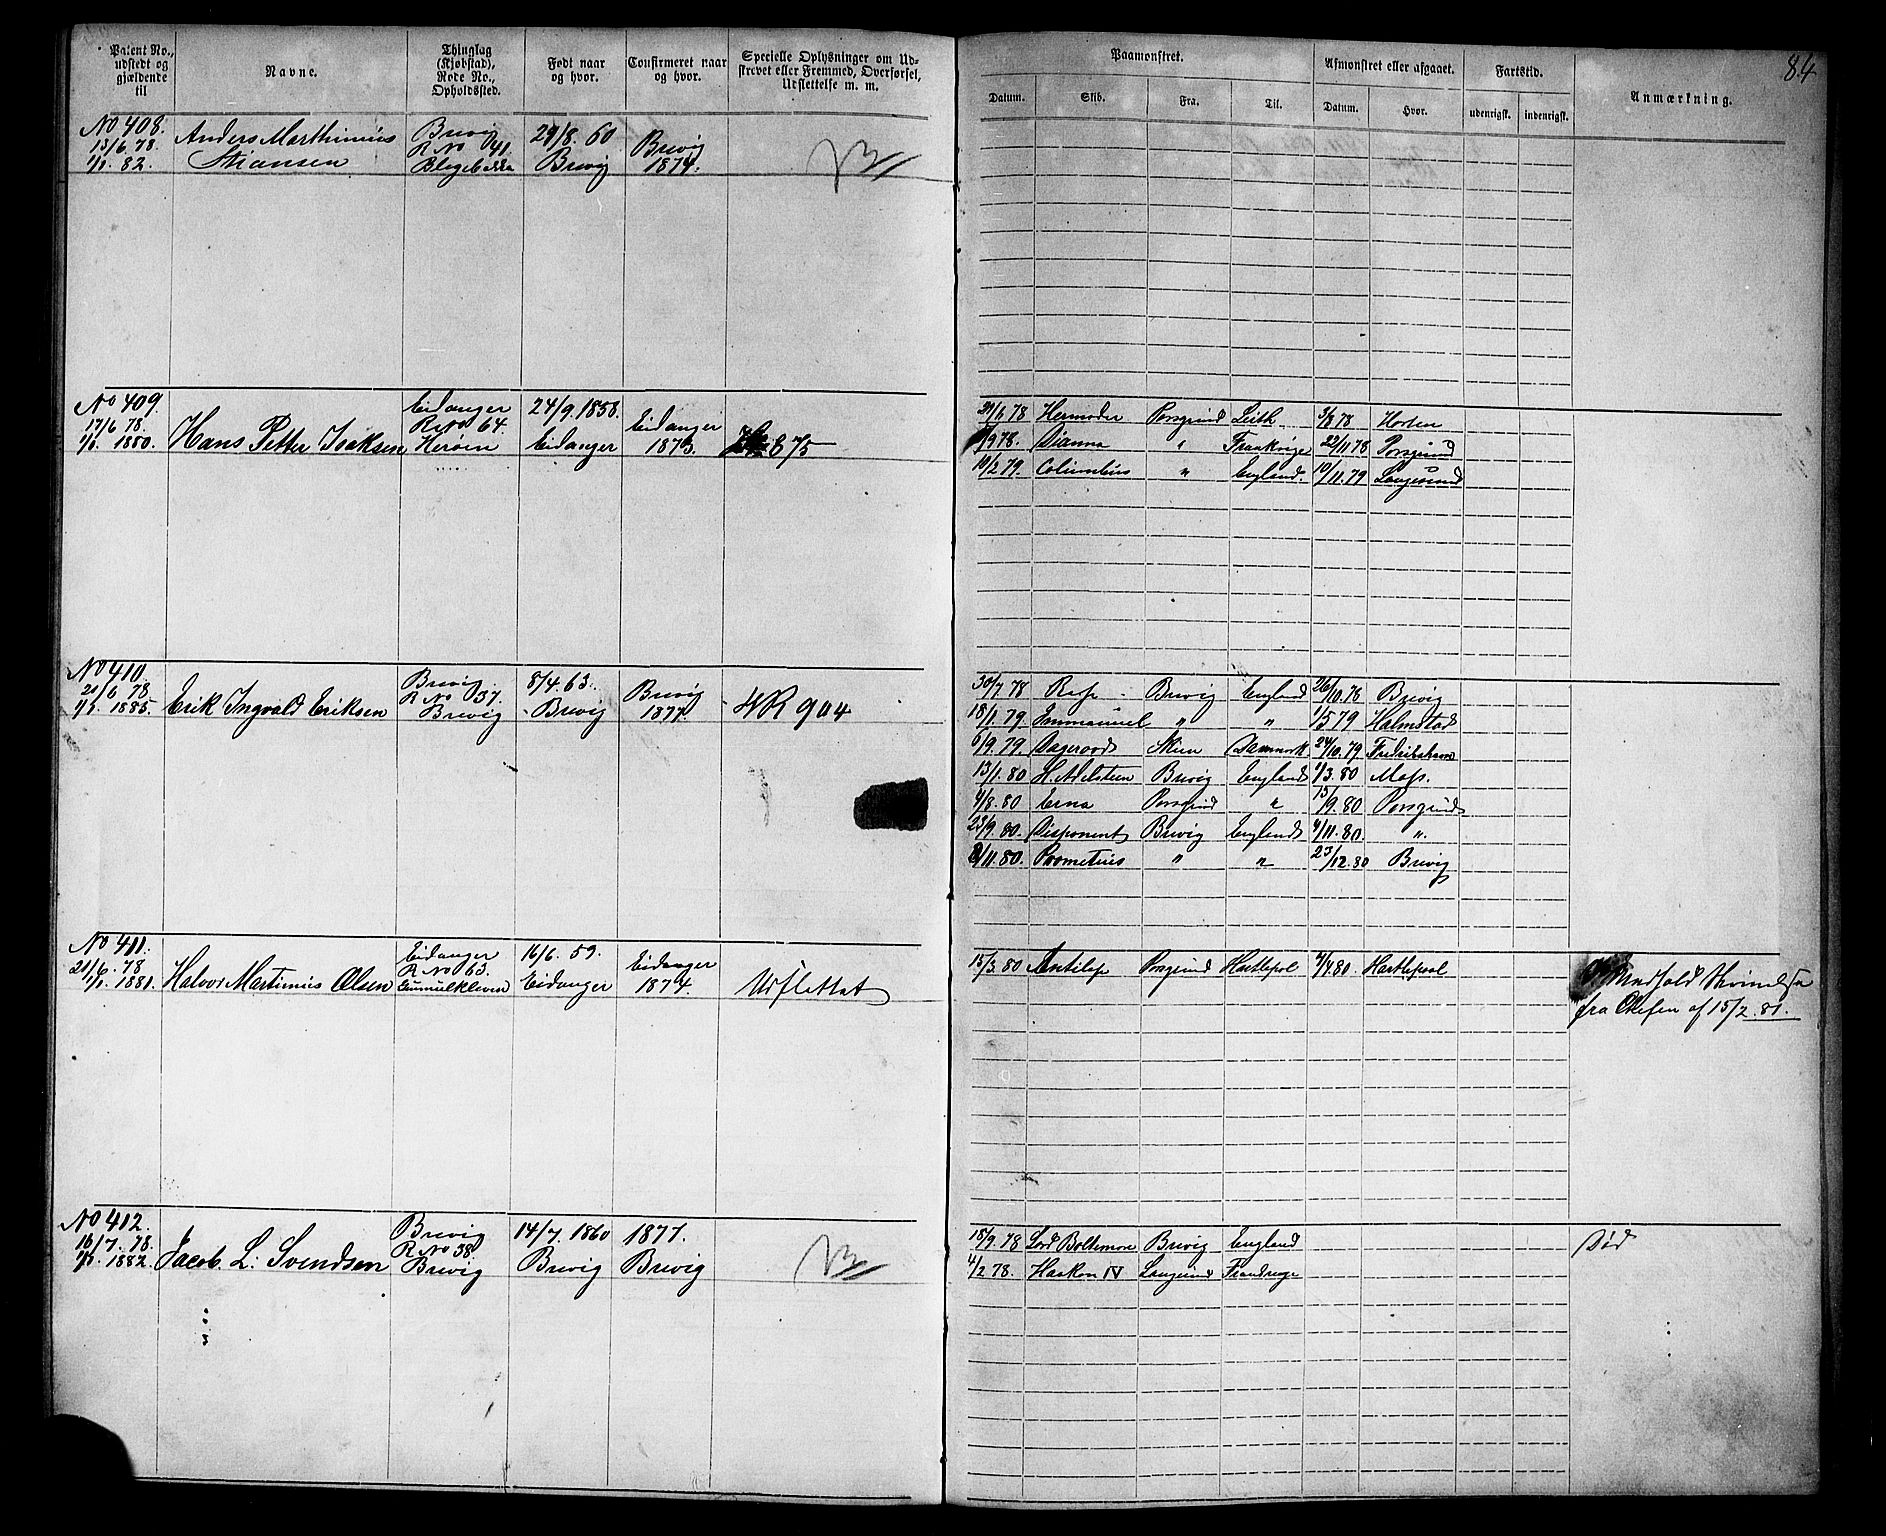 84
Patent No., udstedt og gjældende til
Navne.
Thinglag (Kjøbstad), Rode No., Opholdssted.
Født naar og hvor.
Confirmeret naar og hvor.
Specielle Oplysninger om Udskrevet eller Fremmed, Overførsel, Udslettelse m. m.
Paamønstret.
Datum.
Skib.
Fra.
Til.
Afmønstret eller afgaaet.
Datum.
Hvor.
Fartstid.
udenrigsk.
indenrigsk.
Anmærkning.
No 408.
13/6 78.
1/1. 82.
Anders Marthinius
Hansen
Brevig
R No 41.
29/8. 60
Brevig
Brevig
1874.
No 409.
17/6 78.
1/1. 1880.
Hans Petter Isaksen
Eidanger
R No 64.
Herøen
24/9. 1858.
Eidanger
Eidanger
1873.
875
78 Hermoder Porsgrund Leith 78 Horten
9 78. Dianna " Frankrige 22/11 78 Porsgrund
19/2 79. Columbus " England. 10/11. 79 Langesund
No 410.
21/6 78.
1/1. 1885.
Erik Ingvald Eriksen
Brevig.
R No 37.
Brevig
8/4. 63.
Brevig
Brevig
1877
HR 904
30/7 78 Brevig England 26/10. 78 Brevig
18/1. 79 Emmanuel " " 1/5 79 Halmstad
6/9. 79 Skien Danmark 24/10. 79
13/1. 80 H. Adelsteen Brevig England 1/3. 80 Moss.
4/8. 80 Erna Porsgrund " 13/9. 80 Porsgrund
23/9. 80. Disponent Brevig England 4/11. 80. "
11 80. Prometius " " 23/12. 80 Brevig
No 411.
21/6. 78
1/1. 1881.
Halvor Martinius Olsen
Eidanger
R No 63.
Gunnulkleven
16/6. 59.
Eidanger
Eidanger
1874.
Udslettet
15/3. 80 Antilop Porsgrund Hartlepol 80. Hartlepool
fra af 15/2. 81.
No 412.
16/7. 78.
1/1. 1882.
Jacob L. Svendsen
Brevig
R No 38.
Brevig
14/7. 1860
Brevig
1877.
Brevig
18/9. 78 Lord Baltimore Brevig England
4/2 78. Haakon IV Langesund
Død